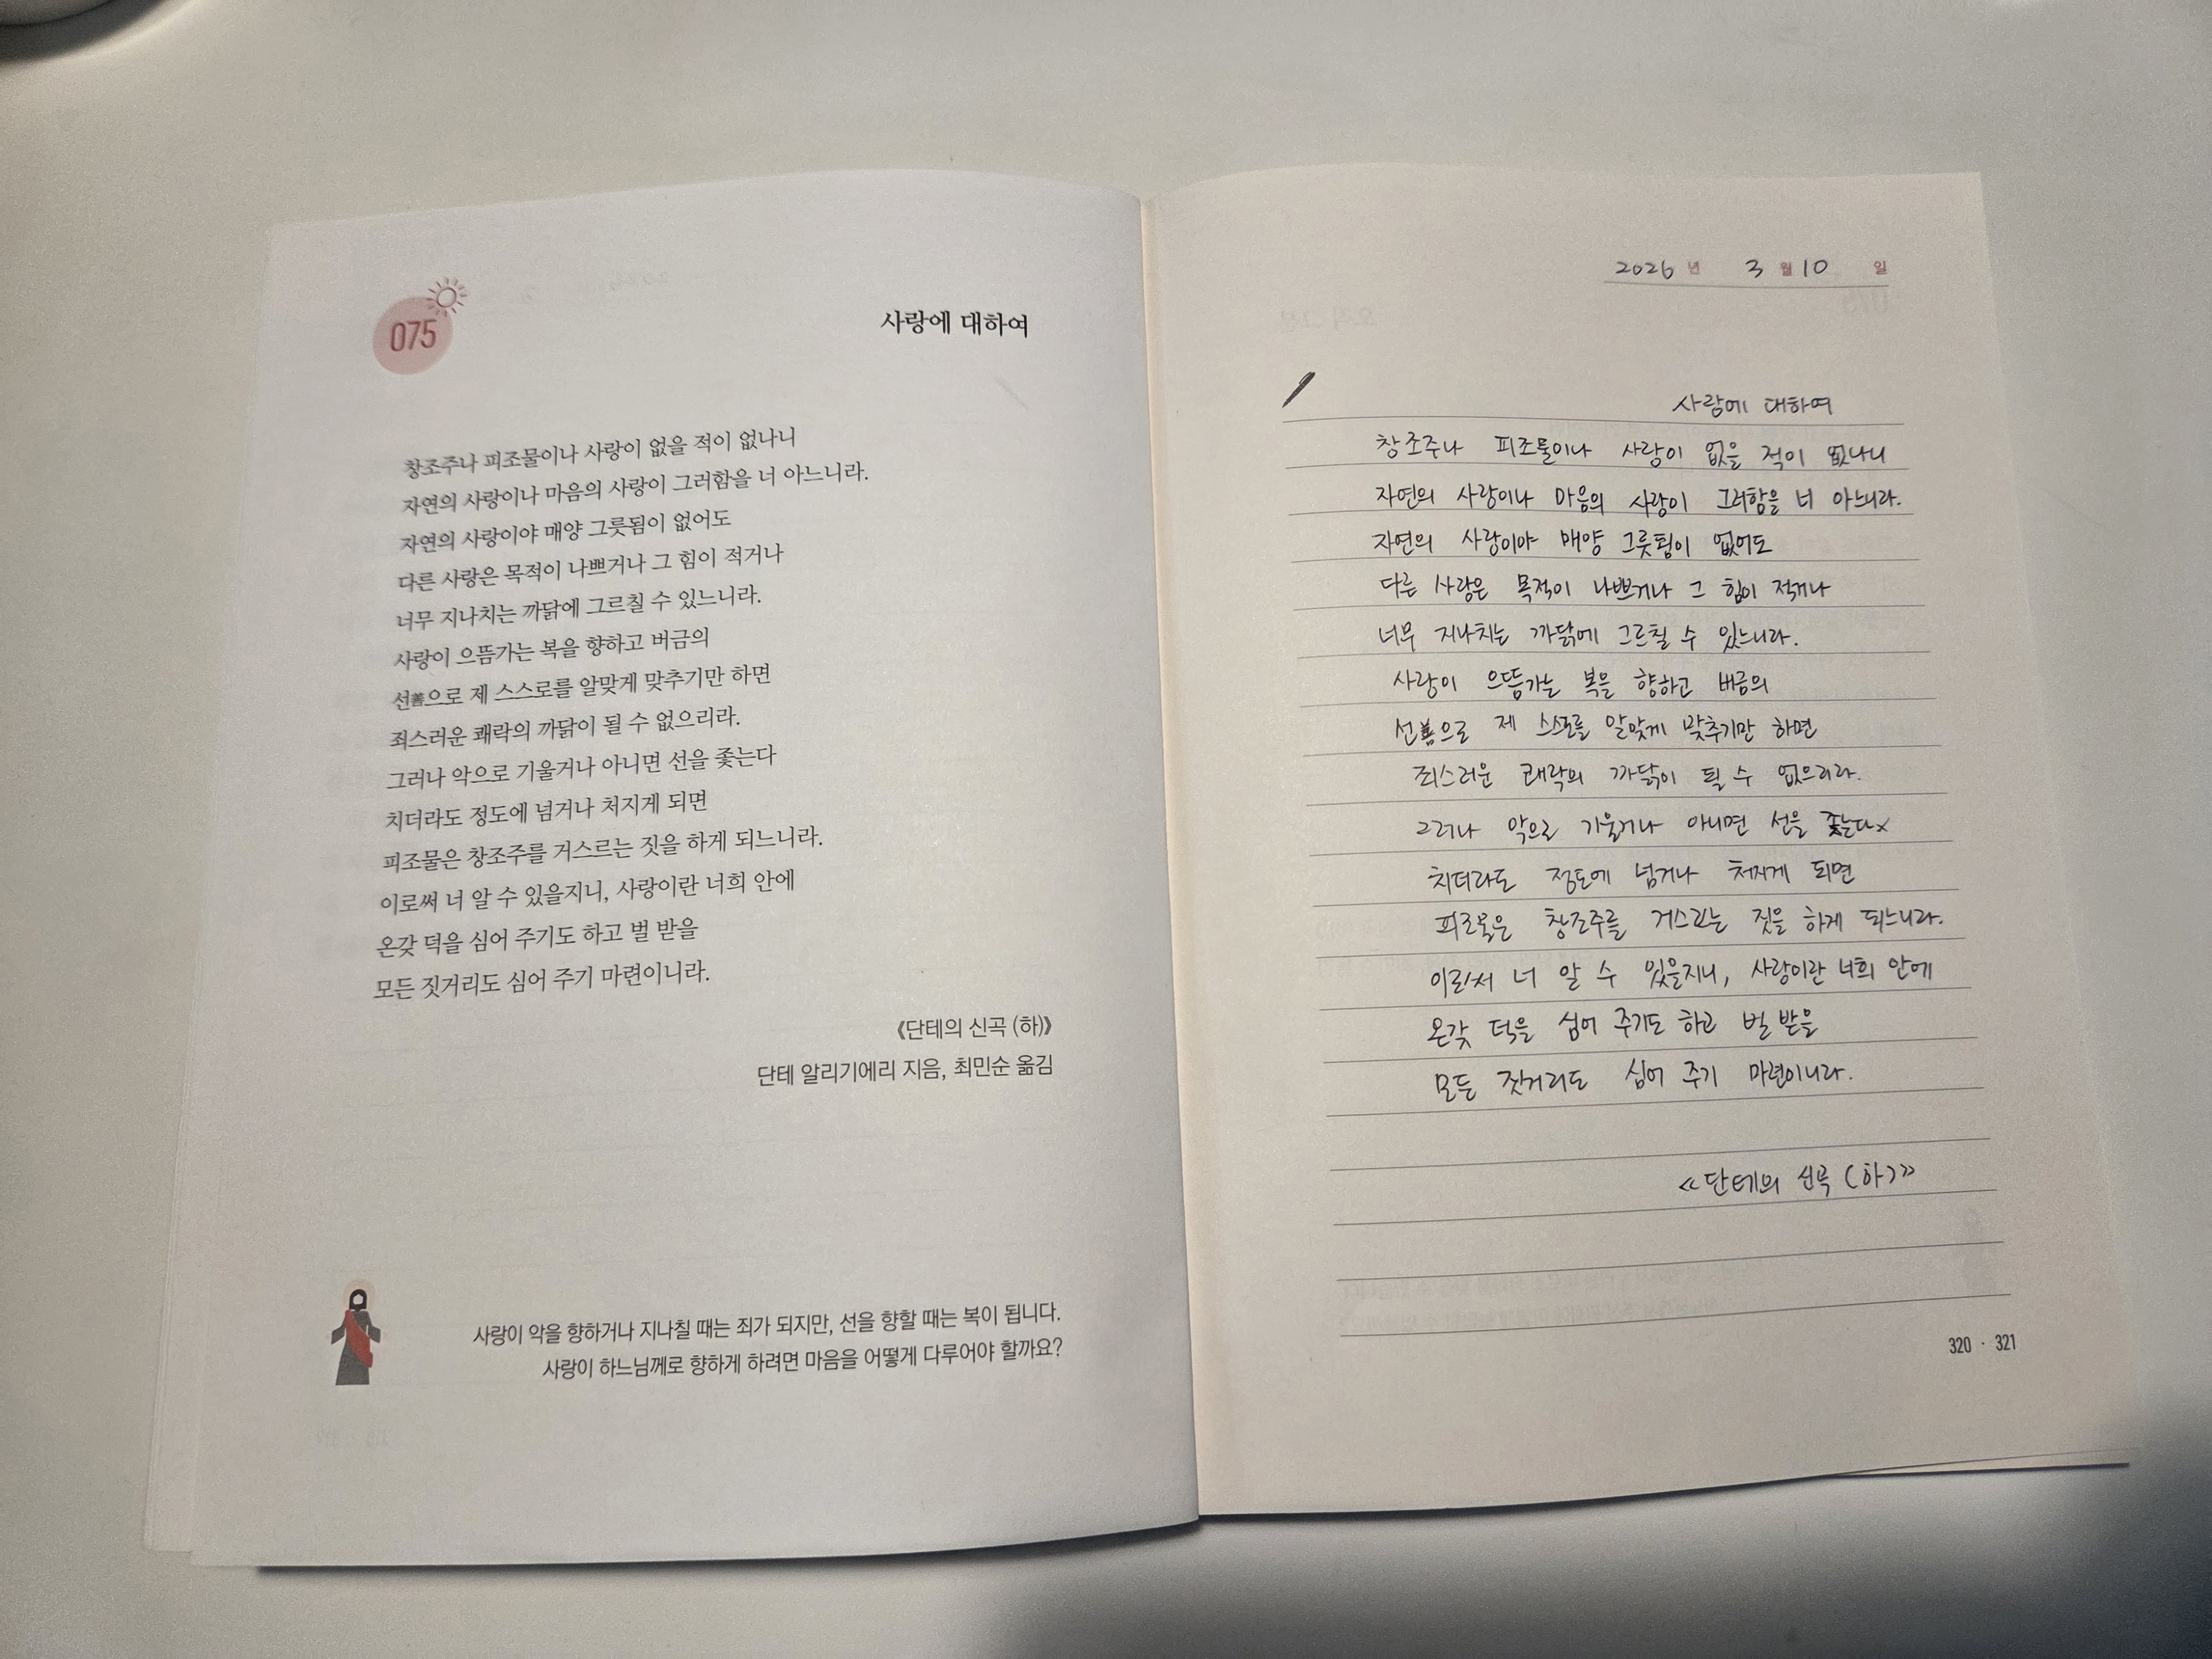 075
사랑에 대하여
창조주나 피조물이나 사랑이 없을 적이 없나니
자연의 사랑이나 마음의 사랑이 그러함을 너 아느니라.
자연의 사랑이야 매양 그릇됨이 없어도
다른 사랑은 목적이 나쁘거나 그 힘이 적거나
너무 지나치는 까닭에 그르칠 수 있느니라.
사랑이 으뜸가는 복을 향하고 버금의
선善으로 제 스스로를 알맞게 맞추기만 하면
죄스러운 쾌락의 까닭이 될 수 없으리라.
그러나 악으로 기울거나 아니면 선을 좇는다
치더라도 정도에 넘거나 처지게 되면
피조물은 창조주를 거스르는 짓을 하게 되느니라.
이로써 너 알 수 있을지니, 사랑이란 너희 안에
온갖 덕을 심어 주기도 하고 벌 받을
모든 짓거리도 심어 주기 마련이니라.
《단테의 신곡 (하)》
단테 알리기에리 지음, 최민순 옮김
사랑이 악을 향하거나 지나칠 때는 죄가 되지만, 선을 향할 때는 복이 됩니다.
사랑이 하느님께로 향하게 하려면 마음을 어떻게 다루어야 할까요?
2026 년 3 월 10 일
사랑에 대하여
창조주나 피조물이나 사랑이 없을 적이 없나니
자연의 사랑이나 마음의 사랑이 그러함을 너 아느니라.
자연의 사랑이야 매양 그릇됨이 없어도
다른 사랑은 목적이 나쁘거나 그 힘이 적거나
너무 지나치는 까닭에 그르칠 수 있느니라.
사랑이 으뜸가는 복을 향하고 버금의
선善으로 제 스스로를 알맞게 맞추기만 하면
죄스러운 쾌락의 까닭이 될 수 없으리라.
그러나 악으로 기울거나 아니면 선을 좇는다
치더라도 정도에 넘거나 처지게 되면
피조물은 창조주를 거스르는 짓을 하게 되느니라.
이로써 너 알 수 있을지니, 사랑이란 너희 안에
온갖 덕을 심어 주기도 하고 벌 받을
모든 짓거리도 심어 주기 마련이니라.
《단테의 신곡 (하)》
320 · 321